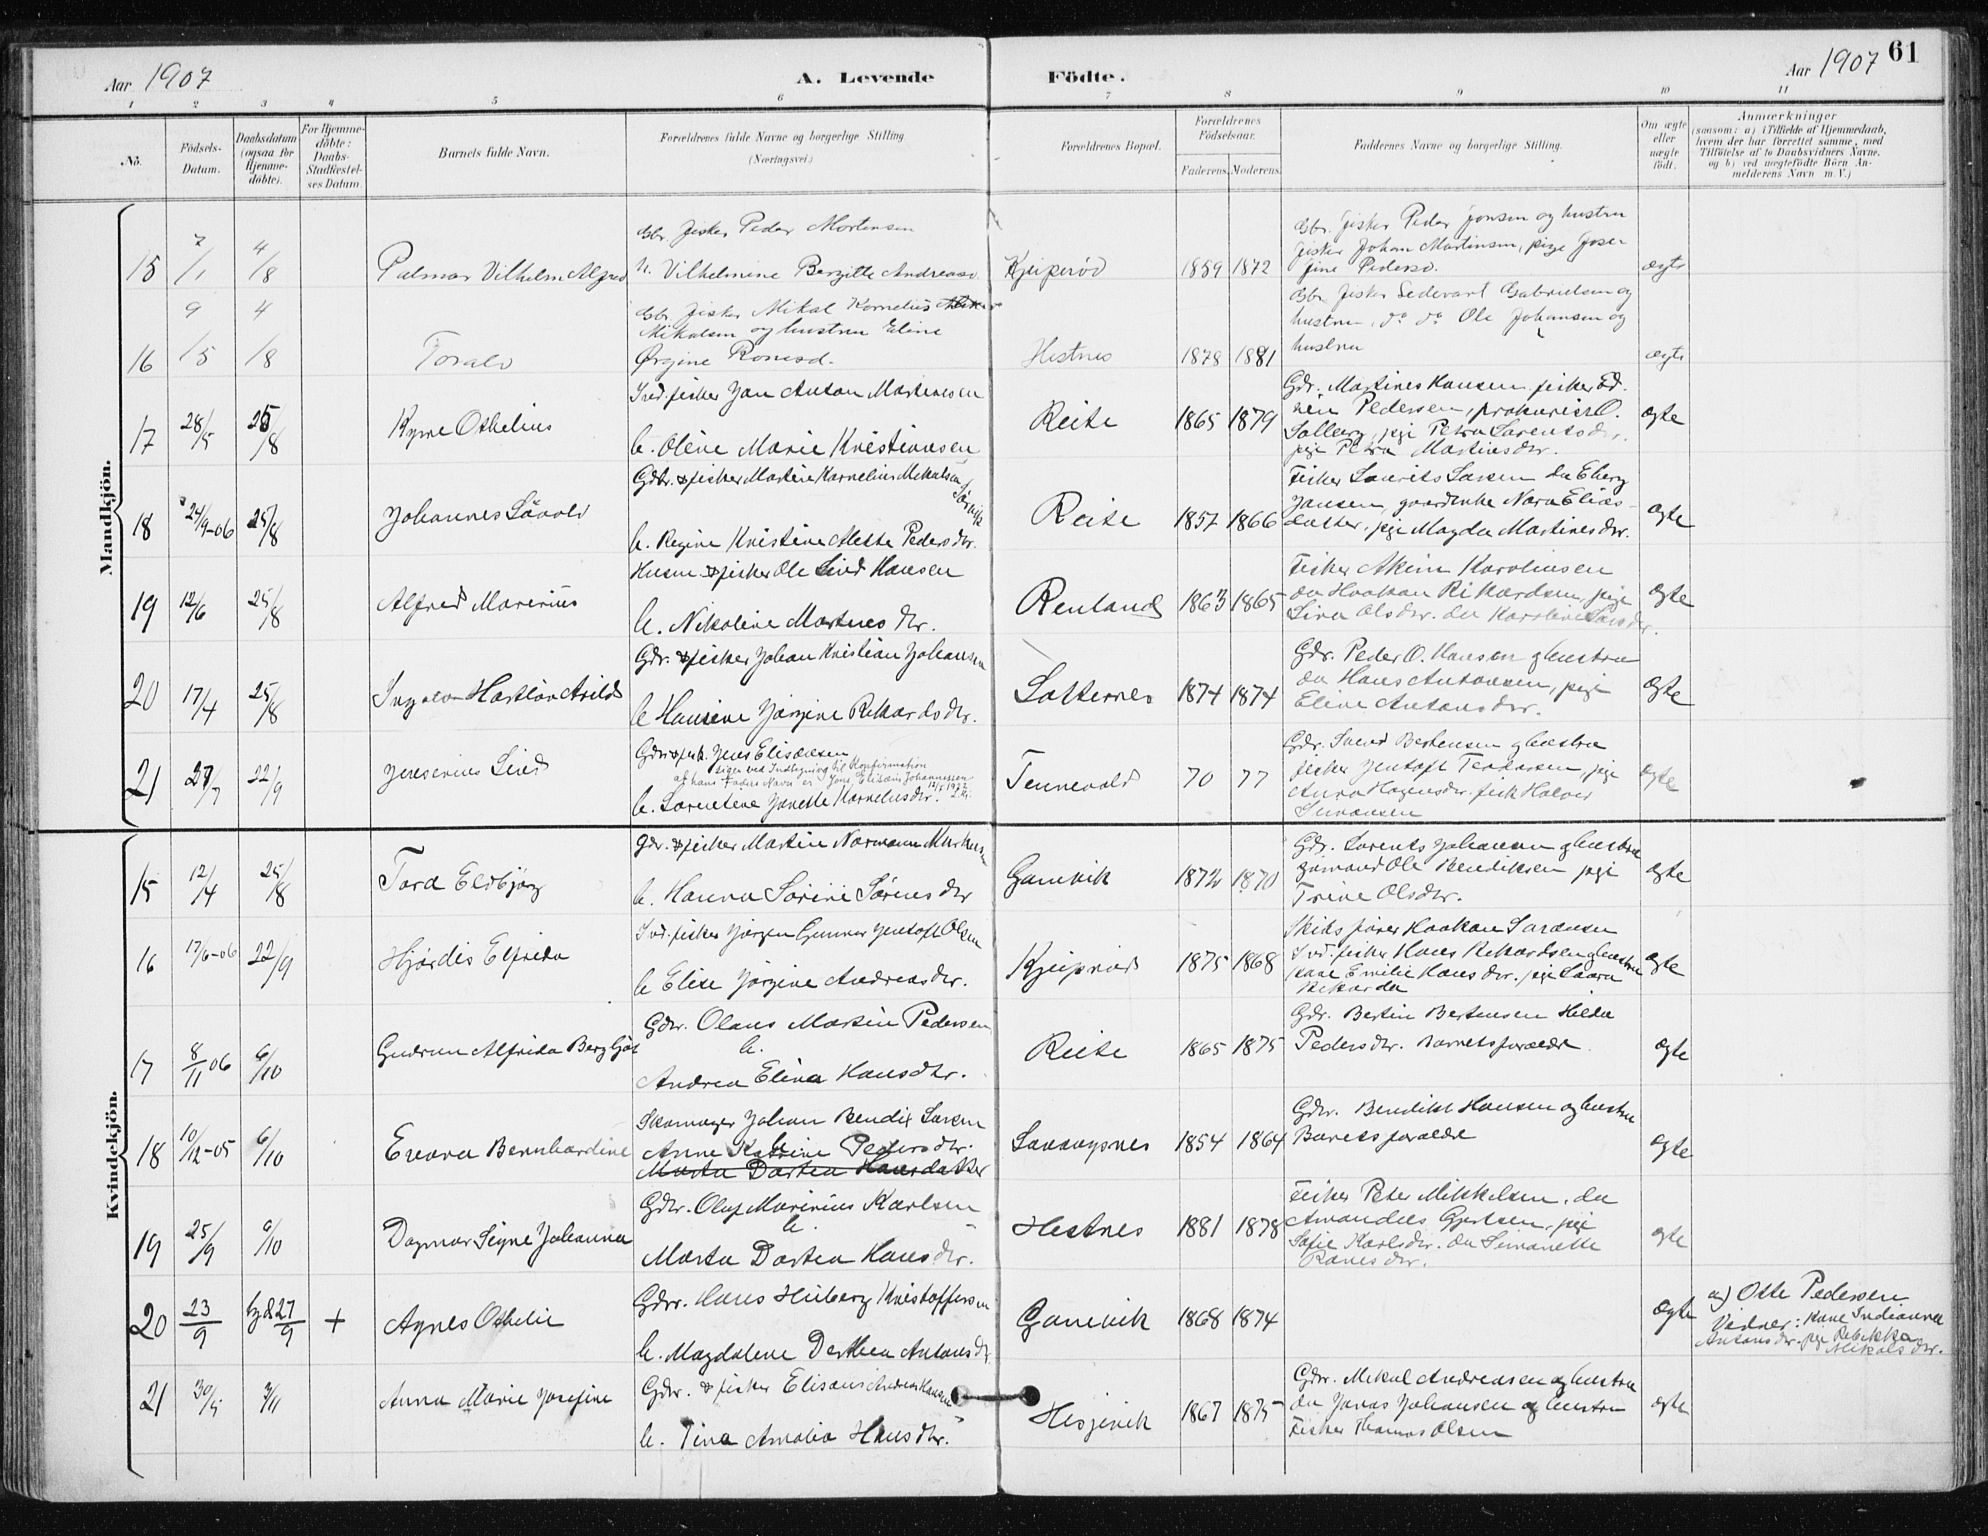 Aar 1907
A. Levende
Födte.
Aar 1907
61
1 2 3 4 5 6 7 8 9 10 11
Nö.
Födsels-
Datum.
Daabsdatum
(ogsaa for
Hjemme-
döbte).
For Hjemme-
döbte:
Daabs-
Stadfæstel-
ses Datum.
Barnets fulde Navn.
Forældrenes fulde Navne og borgerlige Stilling
(Næringsvei)
Forældrenes Bopæl.
Forældrenes
Födselsaar.
Faderens. Moderens.
Faddernes Navne og borgerlige Stilling.
Om ægte
eller
uægte
födt.
Anmærkninger
(saasom: a) i Tilfælde af Hjemmedaab,
hvem der har forrettet samme, med
Tilföielse af to Daabsvidners Navne,
og b) ved uægtefödte Börn An-
melderens Navn m.V.)
Mandkjön.
15 7/1 4/8 Palmar Vilhelm Alfred
Gbr. fisker Peder Mortensen
h. Vilhelmine Bergitte Andreasd.
Kjeiperöd 1859 1872
Gbr. fisker Peder Jonsen og hustru
fisker Johan Martinsen, pige Jose-
fine Pedersd.
ægte
16 9/5 4/8 Toralv
Gbr. fisker Mikal Kornelius
Mikalsen og hustru Eline
Ørgine Ronesd.
Hestnes 1878 1881
Gbr. fisker Sedevart Gabrielsen og
hustru, do do Ole Johansen og
hustru
ægte
17 28/5 25/8 Kyrre Othelius
Ind. fisker Jan Anton Martinesen
h. Oline Marie Kristiansen
Reite 1865 1879
Gdr. Martines Hansen fisker Ed-
vin Pedersen, prokurist O.
Solberg, pige Petra Larentsdtr.,
pige Petra Martinsdtr.
ægte
18 24/9-06 25/8 Johannes Låvold
Gdbr. & fisker Martin Kornelius Mikalsen
h. Regine Kristine Mette Pedersdtr.
Reite 1857 1866
Fisker Laurits Larsen do Eberg
Jansen, gaardenke Nora Elias-
datter, pige Magda Martinesdtr.
ægte
19 12/6 25/8 Alfred Marinius
Husm. & fisker Ole Lind Hansen
h. Nikoline Martnes dtr.
Renland 1863 1865
Fisker Akim Karolinsen
do Haakon Rikardsen, pige
Lina Olsdtr. do Karoline Larsdtr.
ægte
20 17/4 25/8 Ingolav Hartlöv Arild
Gdr. & fisker Johan Kristian Johansen
h Hansine Jörgine Rikardsdtr.
Latternes 1874 1874
Gdr. Peder O. Hansen og hustru
do Hans Antonsen, pige
Eline Antonsdtr.
ægte
21 27/7 22/9 Jensenius Lind
Gdr. & fisk. Jens Elisæusen
siger ved Indtegning til Konfirmation
at hans Faders Navn er Jens Elisæus Johannessen
h. Larentine Janette Kornelius dtr.
Tennevold 70 77
Gdr. Svend Bertensen og hustru
fisker Jentoft Teodorsen, pige
Anna Hagensdtr. fisk Halvor
Simonsen
ægte
Kvindekjön.
15 12/4 25/8 Tora Eldbjörg
Gdr. & fisker Martin Normann Markusen
h. Hanna Sörine Sörensdtr
Gamvik 1872 1870
Gdr. Lorents Johansen og hustru
gaardmand Ole Bendiksen pige
Trine Olsdtr.
ægte
16 17/6-06 22/9 Hjördis Elfrida
Ind. fisker Jörgen Gunnar Jentoft Olsen
h Elise Jörgine Andreasdtr.
Kjeiprød 1875 1868
Skibsförer Haakon Sörensen
Ind. fisker Hans Rikardsen og hustru
kone Emilie Hansdtr. pige Laura
Rikarda
ægte
17 8/11 06 6/10 Gudrun Alfrida Bergljot
Gdr. Olaus Martin Pedersen
h.
Andrea Elina Hansdtr.
Reite 1865 1875
Gdr. Bertin Bertensen Hilda
Pedersdtr. Barnets foræld.
ægte
18 10/12-05 6/10 Enora Bernhardine
Skomager Johan Bendix Larsen
h
Anne Katrine Pedersdtr.
Marta Dortea Hansdatter
Sandvigsnes 1854 1864
Gdr. Bendikt Hansen og hustru
Barnets foræld.
ægte
19 25/9 6/10 Dagmar Signe Johanna
Gdr. Oluf Marinius Karlsen
h.
Marta Dortea Hansdtr.
Hestnes 1881 1878
Fisker Peter Mikkelsen, do
Amandus Gjertsen, pige
Sofie Karlsdtr. do Simonette
Ranesdtr.
ægte
20 23/9 27/9 + Agnes Othelie
Gdr. Hans Hilberg Kristoffersen
h. Magdalene Dorthea Antonsdtr
Gamvik 1868 1874
ægte
a) Otte Pedersen
Vidner: kone Indianna
Antonsdtr. pige Rebekka
Nikolsdtr.
21 30/5 3/11 Anna Marie Josefine
Gdr. & fisker Elisæus Andreas Hansen
h. Tina Amalia Hansdtr.
Hesjevik 1867 1875
Gdr. Mikal Andreasen og hustru
do Jonas Johansen og hustru
Fisker Thomas Olsen
ægte